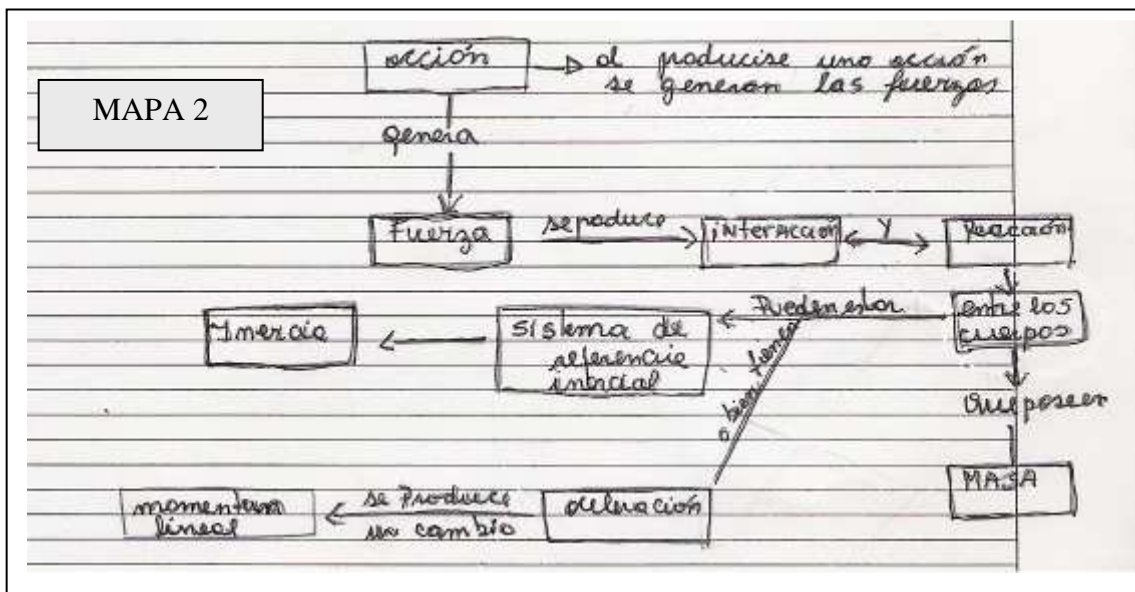 MAPA 2
acción
al producise una acción
se generan las fuerzas
genera
Fuerza
se produce
iNterAccion
Y
Reacción
entre los
cuerpos
Pueden estar
Sistema de
referencia
inercial
Inercia
o bien tienen
Que poseen
MASA
se Produce
un cambio
momentum
lineal